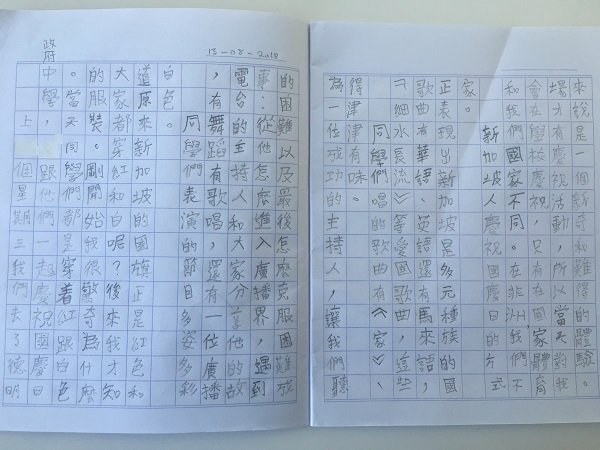 13-08-2018
上個星期三我們去了德明
政府中學,跟他們一起慶祝國慶日
。當天同學們都是穿著紅跟白色
的服裝。剛開始我很驚奇為什麼
大家都穿紅和白的呢?後來我才知
道原來新加坡國旗正是紅色和
白色。
同學們表演的節目多姿多彩
,有舞蹈有歌唱,還有一位廣播
電台的主持人和大家分享他的故
事:從他怎麼進入廣播界,遇到
的困難以及最後怎麼克服困難成
為一位成功的主持人,讓我們聽
得津津有味。
同學們唱的歌曲有《家》、
《細水長流》等愛國歌曲。這些
歌曲有華語、英語還有馬來語,
正表現出新加坡是多元種族的國
家。
新加坡慶祝國慶日的方式
和我們國家不同,在非洲,我們不
會在學校慶祝,只有國家體育
場才有慶祝活動,所以當天對我
來說是一個新奇和難得的體驗。